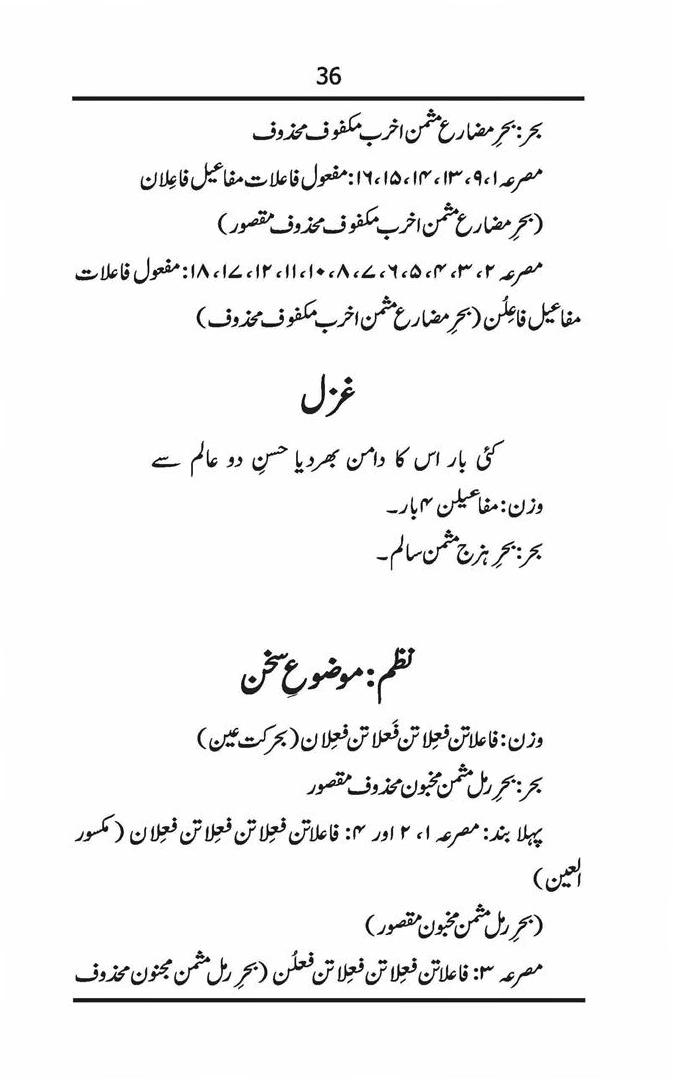 36
بحر: بحرِ مضارع مثمن اخرب مکفوف محذوف
مصرعہ ۱، ۹، ۱۳، ۱۴، ۱۵، ۱۶: مفعول فاعلات مفاعیل فاعِلان
(بحرِ مضارع مثمن اخرب مکفوف محذوف مقصور)
مصرعہ ۲، ۳، ۴، ۵، ۶، ۷، ۸، ۱۰، ۱۱، ۱۲، ۱۷، ۱۸: مفعول فاعلات
مفاعیل فاعِلُن (بحرِ مضارع مثمن اخرب مکفوف محذوف)
غزل
کئی بار اس کا دامن بھردیا حسنِ دو عالم سے
وزن: مفاعیلن ۴ بار۔
بحر: بحرِ ہزج مثمن سالم۔
نظم: موضوعِ سخن
وزن: فاعلاتن فعِلاتن فَعلاتن فعِلان (بحرکت عین)
بحر: بحرِ رمل مثمن مخبون محذوف مقصور
پہلا بند: مصرعہ ۱، ۲ اور ۴: فاعلاتن فعِلاتن فعِلاتن فعِلان (مکسور
العین)
(بحرِ رمل مثمن مخبون مقصور)
مصرعہ ۳: فاعلاتن فعِلاتن فعِلاتن فعلُن (بحرِ رمل مثمن مجنون محذوف